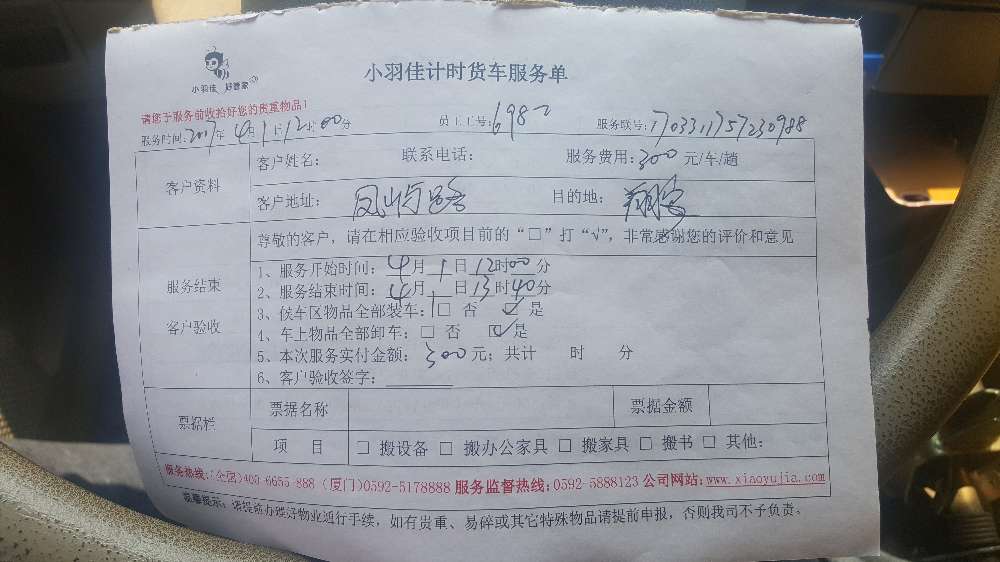 小羽佳 好管家
小羽佳计时货车服务单
请您于服务前收拾好您的贵重物品!
服务时间:2017年4月1日12时00分 员工工号:6982 服务联号:1703311757230988
客户资料
客户姓名: 联系电话: 服务费用:300元/车/趟
客户地址: 凤屿路 目的地:
尊敬的客户,请在相应验收项目前的“□”打“√”,非常感谢您的评价和意见
服务结束
客户验收
1、服务开始时间:4月1日12时00分
2、服务结束时间:4月1日13时40分
3、侯车区物品全部装车:□ 否 ☑ 是
4、车上物品全部卸车:□ 否 ☑ 是
5、本次服务实付金额:300元;共计 时 分
6、客户验收签字:
票据栏
票据名称 票据金额
项 目 □ 搬设备 □ 搬办公家具 □ 搬家具 □ 搬书 □ 其他:
服务热线:(全国)400-6655-888 (厦门)0592-5178888 服务监督热线:0592-5888123 公司网站:www.xiaoyujia.com
温馨提示:请提前办理好物业通行手续,如有贵重、易碎或其它特殊物品请提前申报,否则我司不予负责。